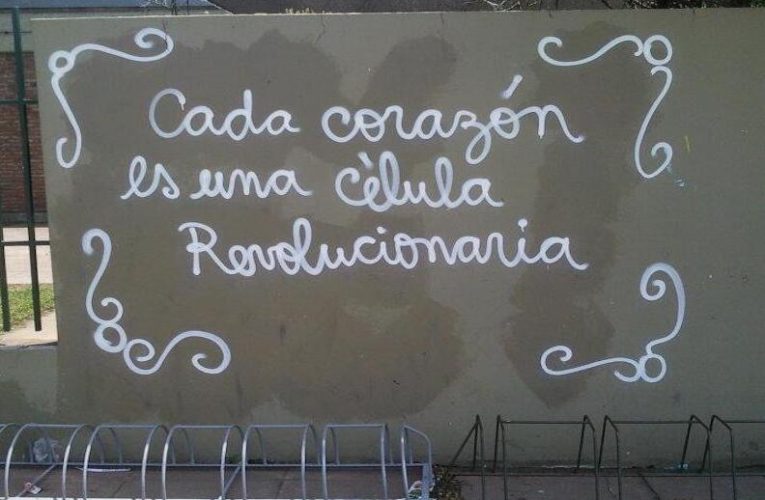 Cada corazón
es una cèlula
Revolucionaria